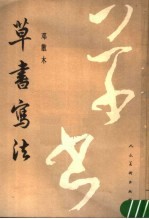 草書
鄧散木
草書寫法
人民美術出版社